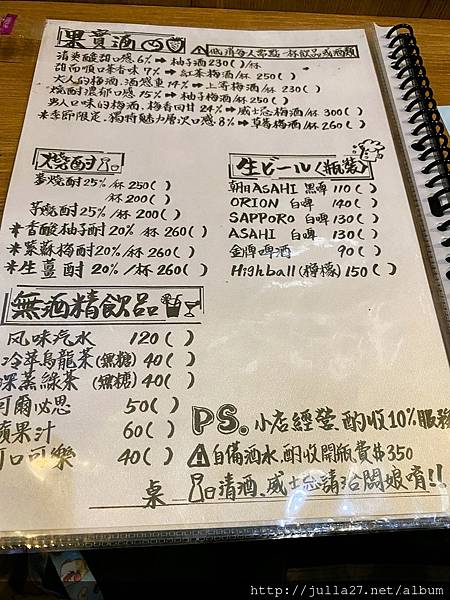 果實酒
⚠低消每人需點一杯飲品或酒類
清爽酸甜口感6%➔柚子酒230( )/杯
甜而順口茶香味7%➔紅茶梅酒/杯250( )
大人的梅酒.酒感重14%➔上等梅酒/杯230( )
燒酎濃郁口感15%➔柚子梅酒/杯250( )
男人口味的梅酒.梅香回甘24%➔威士忌梅酒/杯300( )
*季節限定.獨特魅力層次口感.8%➔草莓梅酒/杯260( )
燒酎
麥燒酎25%/杯250( )
/杯200( )
芋燒酎25%/杯200( )
*香酸柚子酎20%/杯260( )
*紫蘇梅酎20%/杯260( )
*生薑酎20%/杯260( )
生ビール〈瓶裝〉
朝日ASAHI 黑啤 110( )
ORION 白啤 140( )
SAPPORO 白啤 130( )
ASAHI 白啤 130( )
金牌啤酒 90( )
Highball(檸檬) 150( )
無酒精飲品
风味汽水 120( )
冷萃烏龍茶(無糖) 40( )
深蒸綠茶(無糖) 40( )
可爾必思 50( )
蘋果汁 60( )
可口可樂 40( )
PS.小店經營.酌收10%服務
⚠自備酒水.酌收開瓶費$350
桌
清酒.威士忌請洽闆娘唷!!
http://julla27.net/album